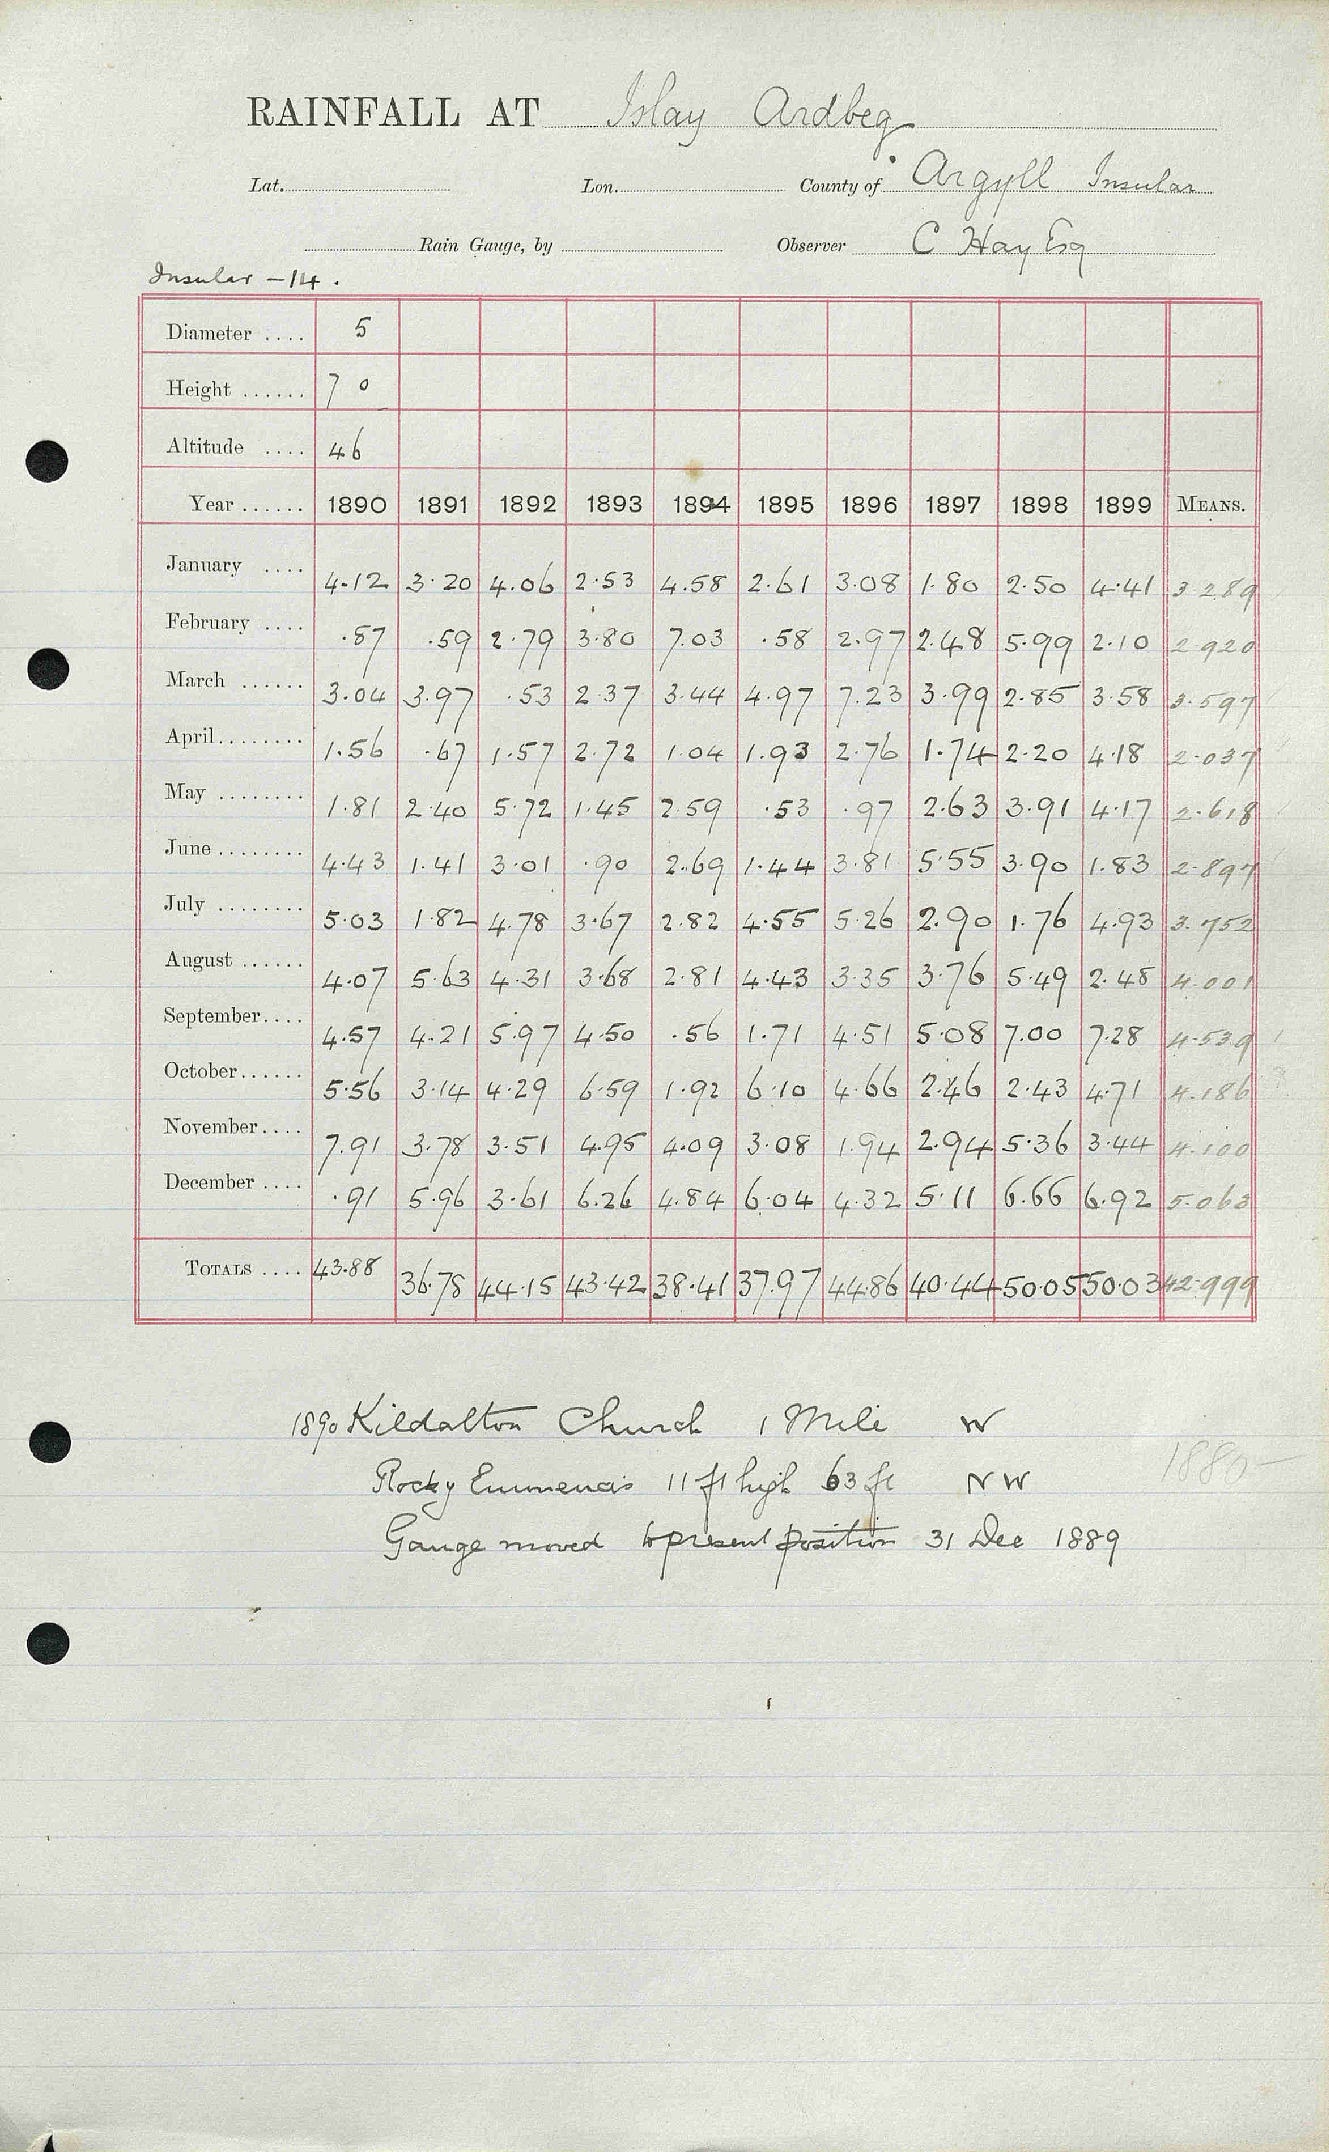 RAINFALL AT Islay Ardbeg
Lat. Lon. County of Argyll Insular
Rain Gauge, by Observer C Hay Esq
Insular - 14.
Diameter .... 5
Height ...... 7 0
Altitude .... 46
Year ...... 1890 1891 1892 1893 1894 1895 1896 1897 1898 1899 MEANS.
January .... 4.12 3.20 4.06 2.53 4.58 2.61 3.08 1.80 2.50 4.41 3.289
February .... .87 .59 2.79 3.80 7.03 .58 2.97 2.48 5.99 2.10 2.920
March ...... 3.04 3.97 .53 2.37 3.44 4.97 7.23 3.99 2.85 3.58 3.597
April........ 1.56 .67 1.57 2.72 1.04 1.93 2.76 1.74 2.20 4.18 2.037
May ........ 1.81 2.40 5.72 1.45 2.59 .53 .97 2.63 3.91 4.17 2.618
June........ 4.43 1.41 3.01 .90 2.69 1.44 3.81 5.55 3.90 1.83 2.897
July ........ 5.03 1.82 4.78 3.67 2.82 4.55 5.26 2.90 1.76 4.93 3.752
August ...... 4.07 5.63 4.31 3.68 2.81 4.43 3.35 3.76 5.49 2.48 4.001
September.... 4.57 4.21 5.97 4.50 .56 1.71 4.51 5.08 7.00 7.28 4.539
October...... 5.56 3.14 4.29 6.59 1.92 6.10 4.66 2.46 2.43 4.71 4.186
November.... 7.91 3.78 3.51 4.95 4.09 3.08 1.94 2.94 5.36 3.44 4.100
December .... .91 5.96 3.61 6.26 4.84 6.04 4.32 5.11 6.66 6.92 5.063
TOTALS .... 43.88 36.78 44.15 43.42 38.41 37.97 44.86 40.44 50.05 50.03 42.999
1890 Kildalton Church 1 Mile W
Rocky Eminences 11 ft high 63 ft NW
1880-
Gauge moved to present position 31 Dec 1889